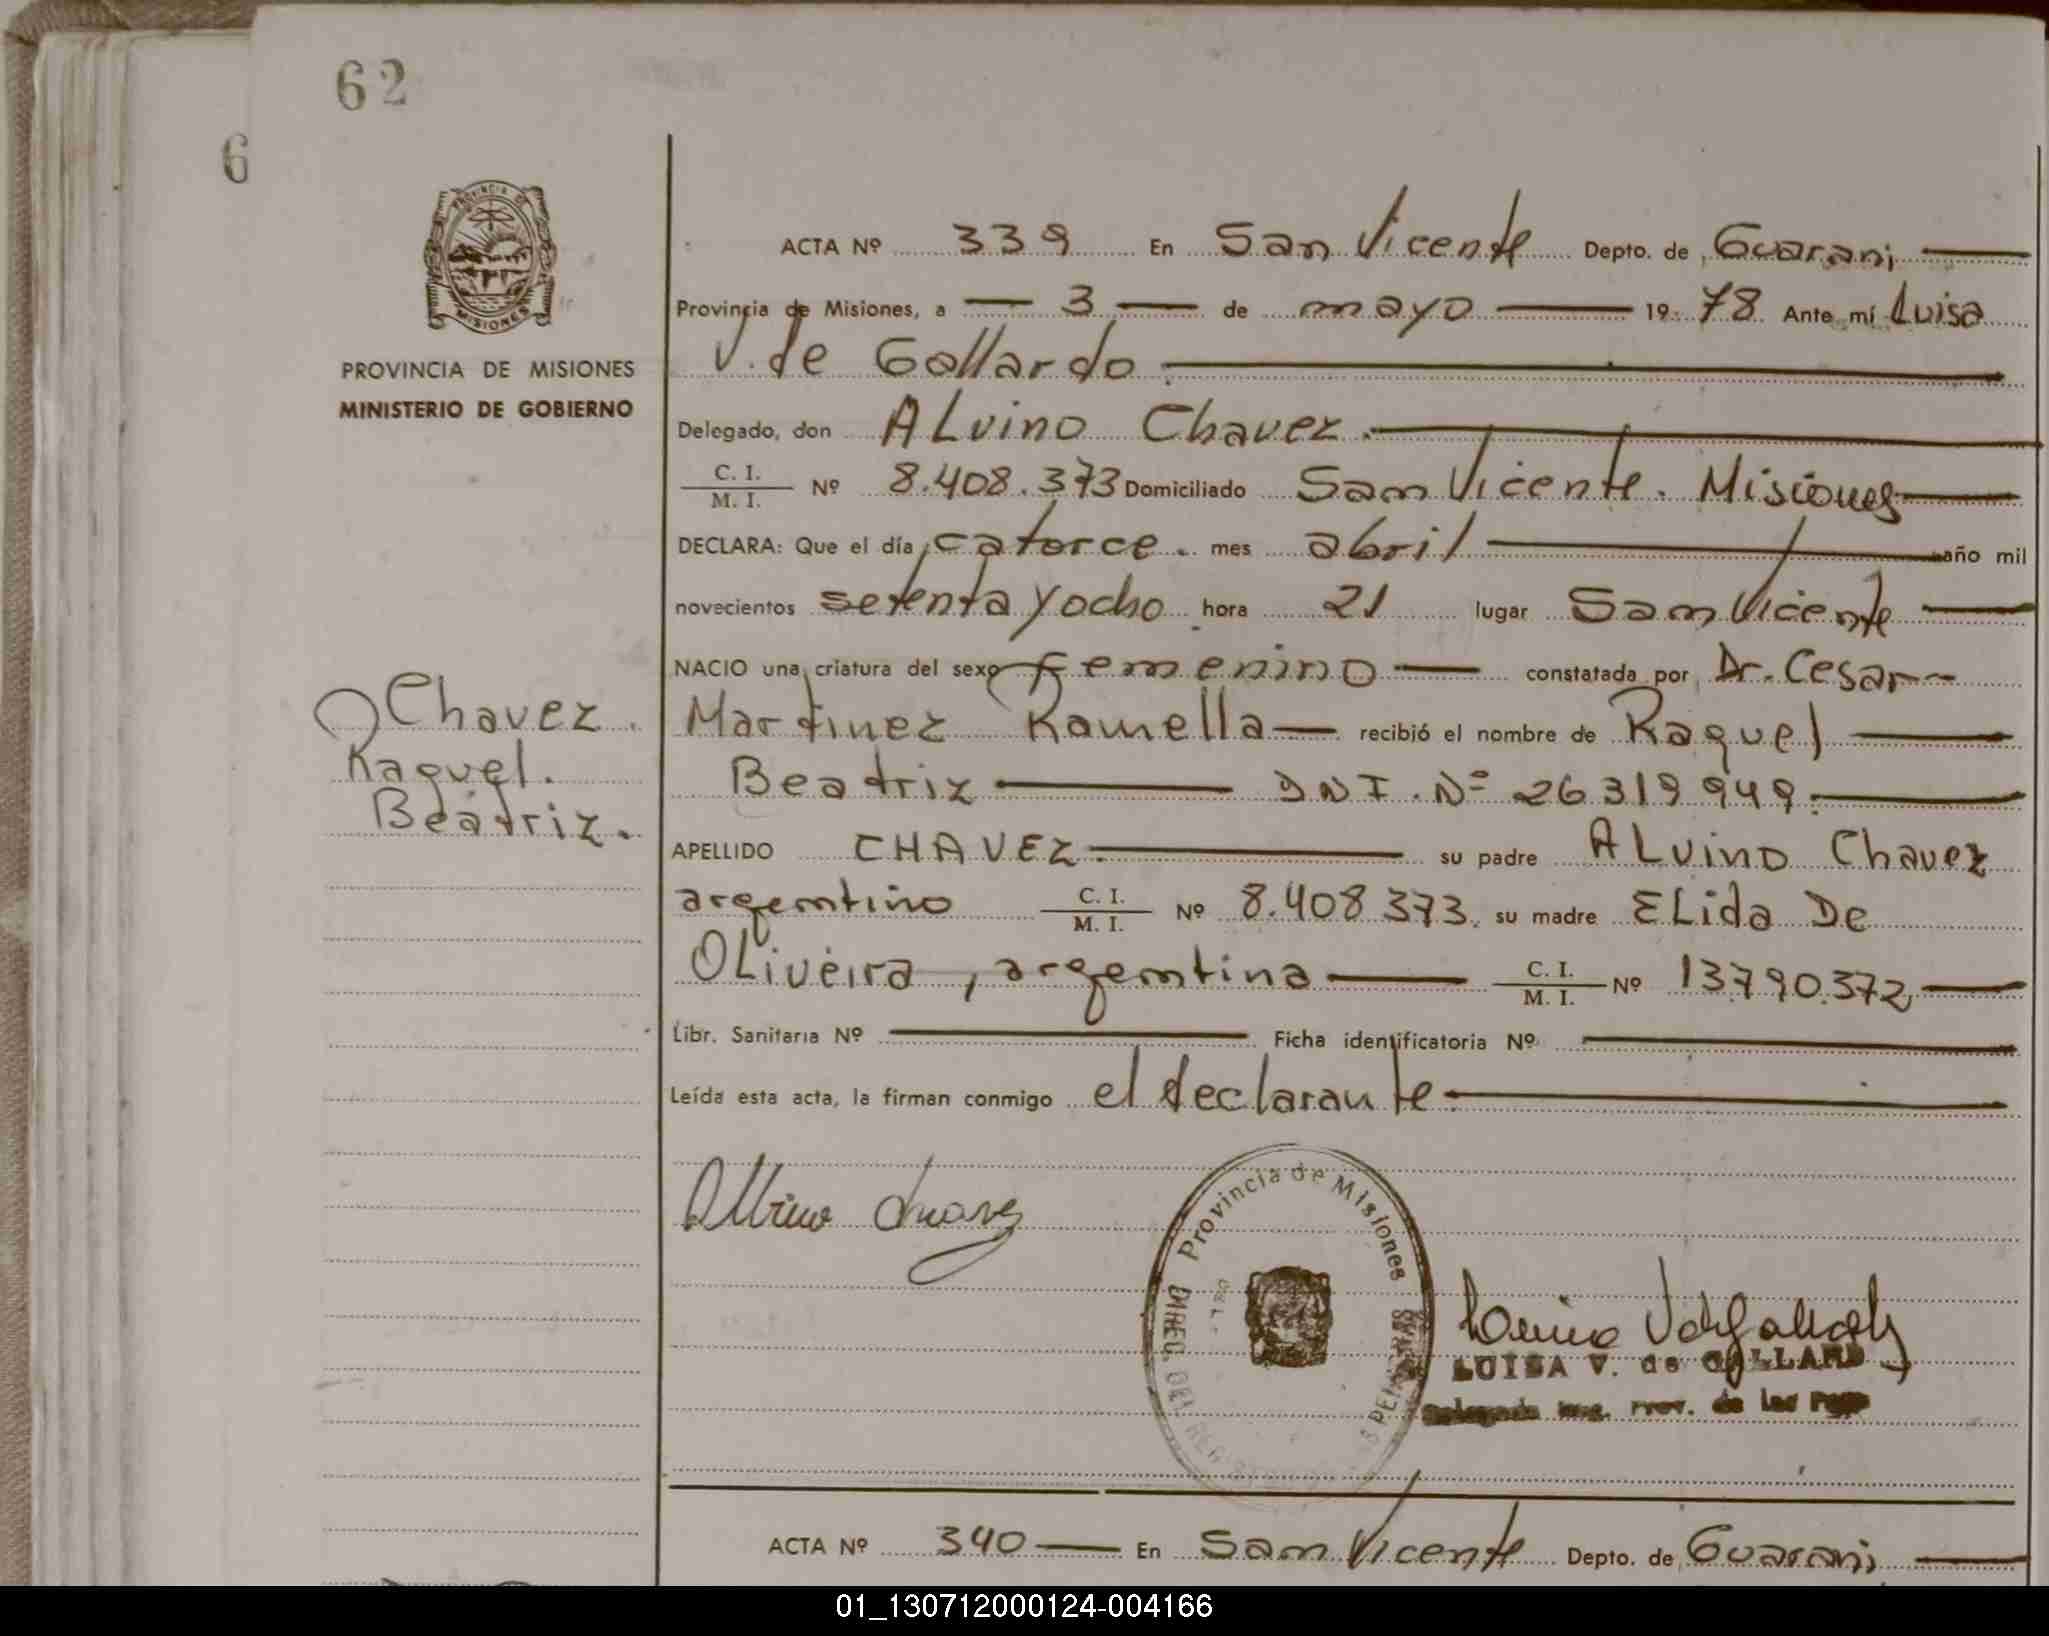 62
6
PROVINCIA DE
MISIONES
PROVINCIA DE MISIONES
MINISTERIO DE GOBIERNO
Chavez.
Raquel.
Beatriz.
ACTA Nº 339 En San Vicente Depto. de Guarani
Provincia de Misiones, a 3 de mayo 1978 Ante mí Luisa
V. de Gallardo
Delegado, don ALvino Chavez.
C. I. / M. I. Nº 8.408.373 Domiciliado San Vicente. Misiones
DECLARA: Que el día catorce. mes abril año mil
novecientos setenta y ocho hora 21 lugar San Vicente
NACIO una criatura del sexo femenino constatada por Dr. Cesar
Martinez Ramella recibió el nombre de Raquel
Beatriz DNI. Nº 26319949.
APELLIDO CHAVEZ. su padre ALvino Chavez
argentino C. I. / M. I. Nº 8.408373. su madre ELida De
OLiveira, argentina C. I. / M. I. Nº 13790.372
Libr. Sanitaria Nº Ficha identificatoria Nº
Leída esta acta, la firman conmigo el declarante.
Provincia de Misiones
DIREC. DEL
LUISA V. de GALLARD
de las
ACTA Nº 340 En San Vicente Depto. de Guarani
01_130712000124-004166